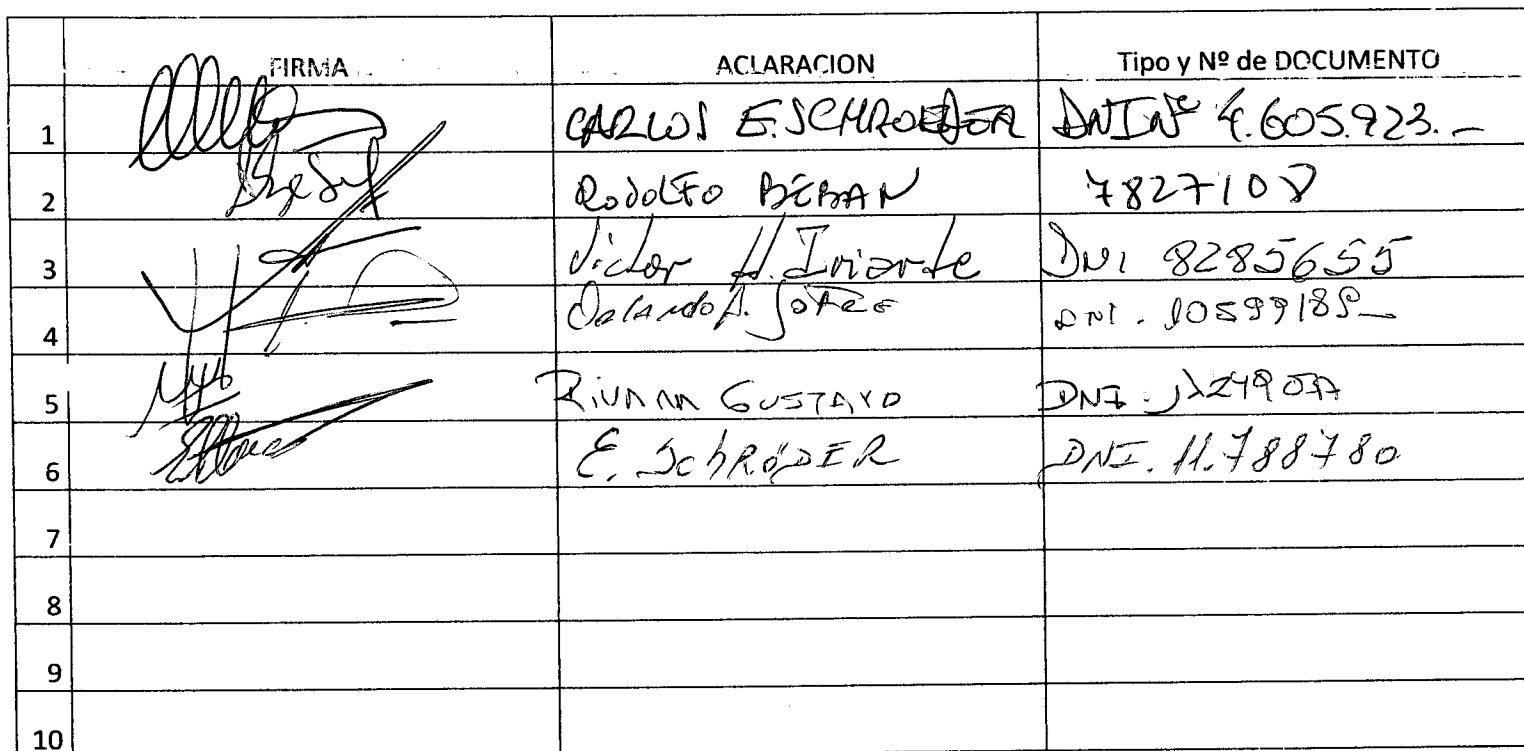 FIRMA ACLARACION Tipo y Nº de DOCUMENTO
1 CARLOS E. SCHROEDER DNI Nº 4.605.923.-
2 RODOLFO BEBAN 7827108
3 Victor H. Iriarte DNI 8285655
4 Orlando A. DNI. 10599185-
5 GUSTAVO DNI.
6 E. SCHRÓDER DNI. 11.788780
7
8
9
10